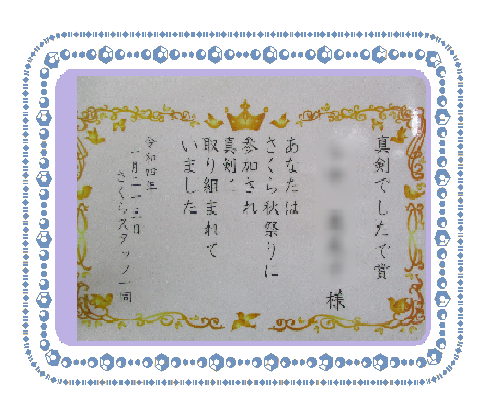 真剣でしたで賞
様
あなたは
さくら秋祭りに
参加され
真剣に
取り組まれて
いました
令和四年
さくらスタッフ一同